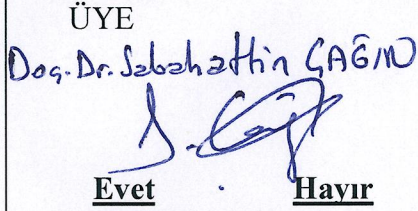 ÜYE
Doç. Dr. Sabahattin ÇAĞIN
Evet Hayır